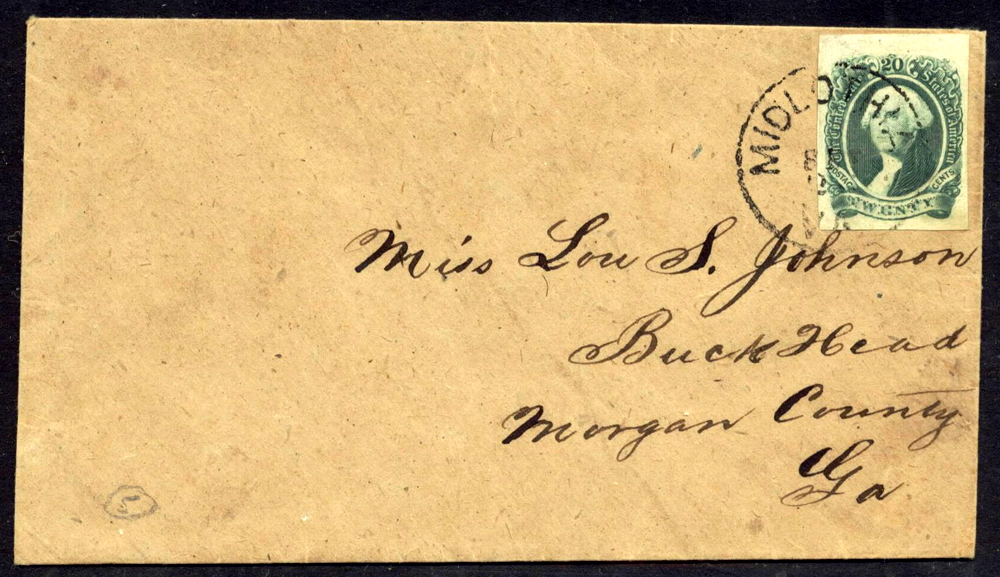 20
The Confederate States of America
POSTAGE CENTS
TWENTY
MIDLOTH
Miss Lou S. Johnson
Buck Head
Morgan County
Ga
5